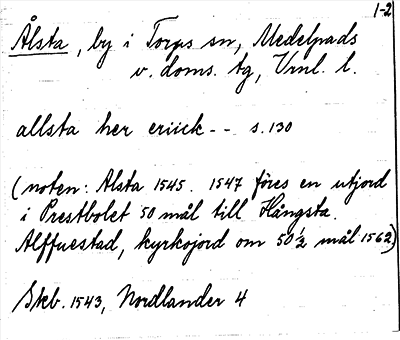 1-2
Ålsta, by i Torps sn, Medelpads
v. doms. tg, Vrnl. l.
allsta her eriick - - s. 130
(noten: Alsta 1545. 1547 föres en utjord
i Prestbolet 50 mål till Hångsta.
Alffuestad, kyrkojord om 50 1/2 mål 1562)
Skb. 1543, Nordlander 4